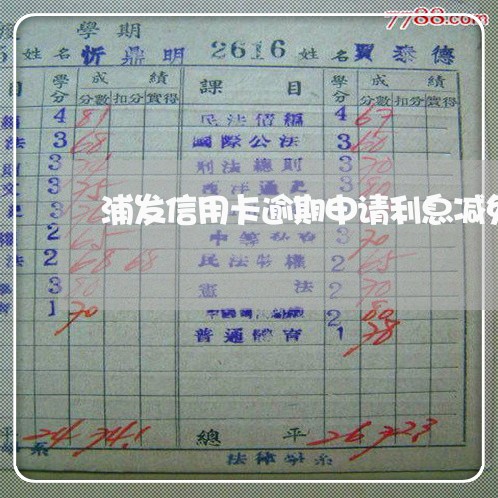 7788.com
學期
姓名 忻鼎明 2616 姓名 賈泰德
目 學分 成績 課目 學分 成績
分數 扣分 實得 分數 扣分 實得
4 81 民法債編 4 67
法 3 68 國際公法 3 60
3 刑法總則 3 70
文 3 75 西洋通史 3
浦发信用卡逾期申请利息减免
2 65 3 70
法 2 68 68 民法物權 2 65
3 80 憲法 2 70
1 70 2 80
普通體育 1 78
平 24 74.1 總平 26 72.3
系 法律學系